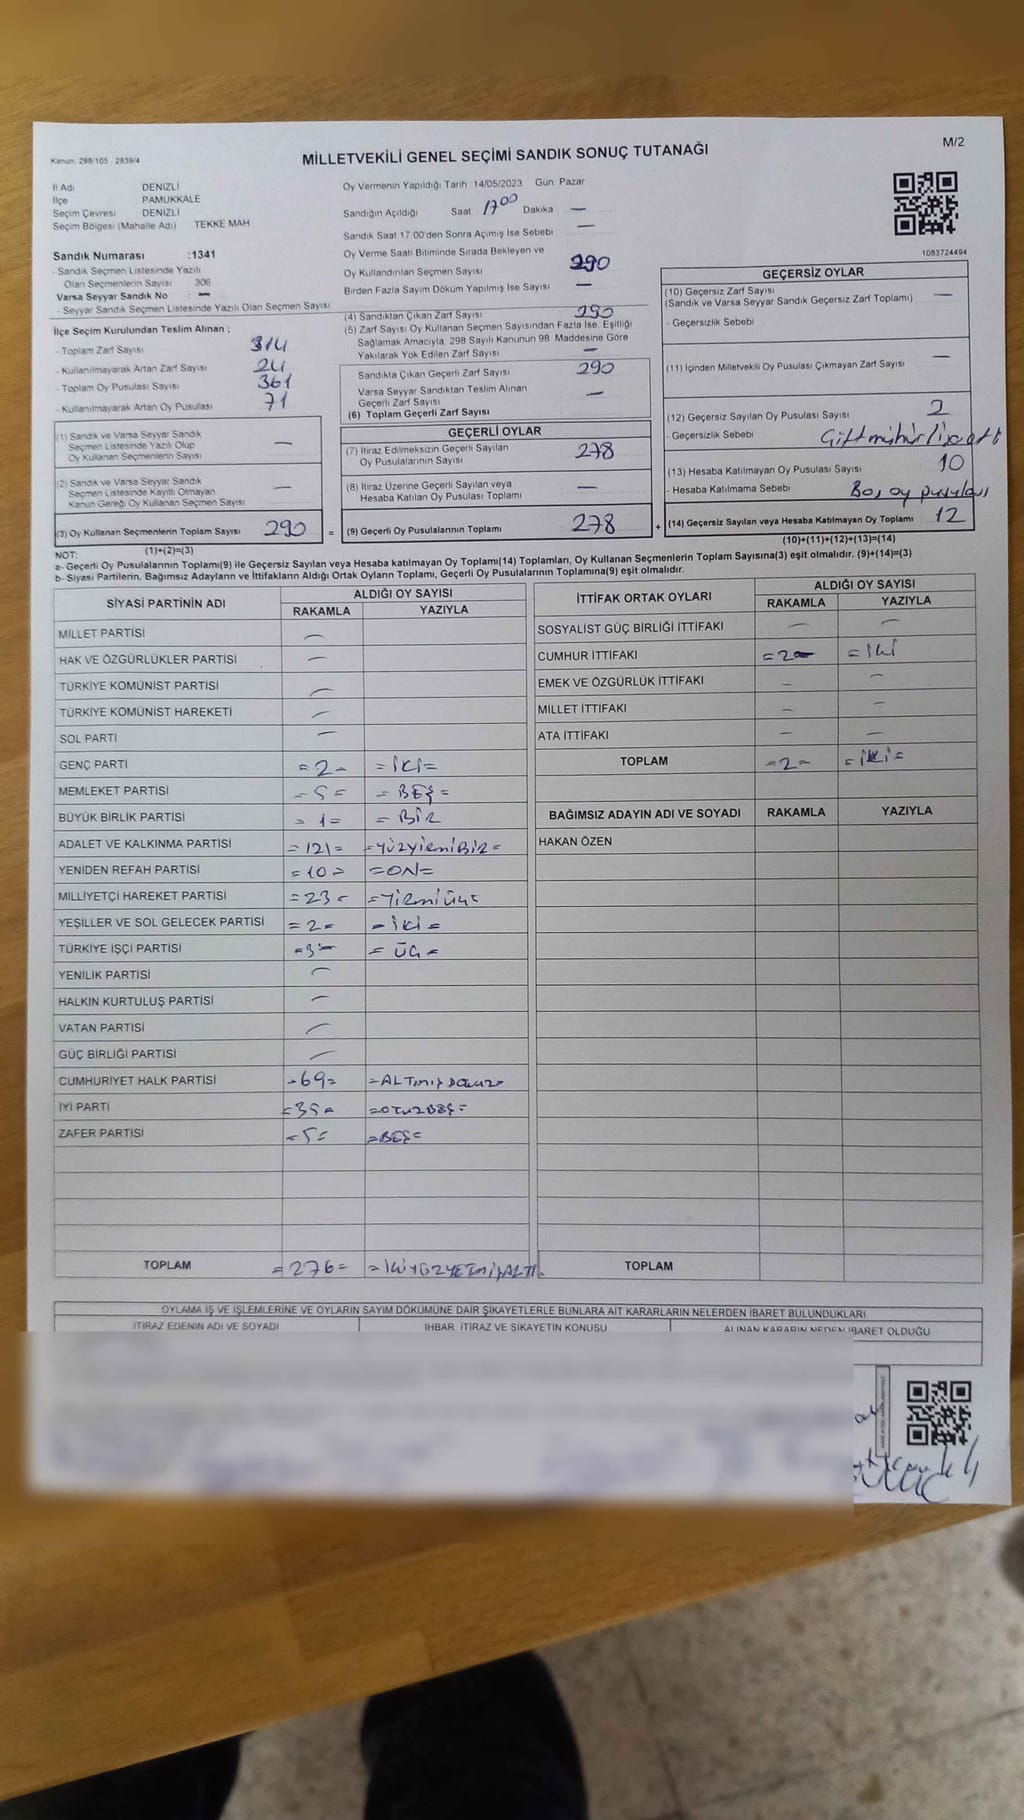 Kanun: 298/105 , 2839/4
MİLLETVEKİLİ GENEL SEÇİMİ SANDIK SONUÇ TUTANAĞI
M/2
İl Adı DENİZLİ
İlçe PAMUKKALE
Seçim Çevresi DENİZLİ
Seçim Bölgesi (Mahalle Adı) TEKKE MAH
Sandık Numarası :1341
- Sandık Seçmen Listesinde Yazılı
Olan Seçmenlerin Sayısı 306
Varsa Seyyar Sandık No : —
- Seyyar Sandık Seçmen Listesinde Yazılı Olan Seçmen Sayısı
İlçe Seçim Kurulundan Teslim Alınan ;
- Toplam Zarf Sayısı 314
- Kullanılmayarak Artan Zarf Sayısı 24
- Toplam Oy Pusulası Sayısı 361
- Kullanılmayarak Artan Oy Pusulası 71
(1) Sandık ve Varsa Seyyar Sandık
Seçmen Listesinde Yazılı Olup
Oy Kullanan Seçmenlerin Sayısı —
(2) Sandık ve Varsa Seyyar Sandık
Seçmen Listesinde Kayıtlı Olmayan
Kanun Gereği Oy Kullanan Seçmen Sayısı —
(3) Oy Kullanan Seçmenlerin Toplam Sayısı 290 =
Oy Vermenin Yapıldığı Tarih 14/05/2023 Gün Pazar
Sandığın Açıldığı Saat 17⁰⁰ Dakika —
Sandık Saat 17:00'den Sonra Açımış İse Sebebi —
Oy Verme Saati Bitiminde Sırada Bekleyen ve
Oy Kullandırılan Seçmen Sayısı 290
Birden Fazla Sayım Döküm Yapılmış İse Sayısı —
(4) Sandıktan Çıkan Zarf Sayısı 290
(5) Zarf Sayısı Oy Kullanan Seçmen Sayısından Fazla İse, Eşitliği
Sağlamak Amacıyla, 298 Sayılı Kanunun 98. Maddesine Göre
Yakılarak Yok Edilen Zarf Sayısı —
Sandıkta Çıkan Geçerli Zarf Sayısı 290
Varsa Seyyar Sandıktan Teslim Alınan
Geçerli Zarf Sayısı —
(6) Toplam Geçerli Zarf Sayısı
GEÇERLİ OYLAR
(7) İtiraz Edilmeksizin Geçerli Sayılan
Oy Pusulalarının Sayısı 278
(8) İtiraz Üzerine Geçerli Sayılan veya
Hesaba Katılan Oy Pusulası Toplamı —
(9) Geçerli Oy Pusulalarının Toplamı 278 +
1083724494
GEÇERSİZ OYLAR
(10) Geçersiz Zarf Sayısı
(Sandık ve Varsa Seyyar Sandık Geçersiz Zarf Toplamı) —
- Geçersizlik Sebebi
(11) İçinden Milletvekili Oy Pusulası Çıkmayan Zarf Sayısı —
(12) Geçersiz Sayılan Oy Pusulası Sayısı 2
- Geçersizlik Sebebi Çift mühür
(13) Hesaba Katılmayan Oy Pusulası Sayısı 10
- Hesaba Katılmama Sebebi Boş oy pusulası
(14) Geçersiz Sayılan veya Hesaba Katılmayan Oy Toplamı 12
NOT: (1)+(2)=(3) (10)+(11)+(12)+(13)=(14)
a- Geçerli Oy Pusulalarının Toplamı(9) ile Geçersiz Sayılan veya Hesaba katılmayan Oy Toplamı(14) Toplamları, Oy Kullanan Seçmenlerin Toplam Sayısına(3) eşit olmalıdır. (9)+(14)=(3)
b- Siyasi Partilerin, Bağımsız Adayların ve İttifakların Aldığı Ortak Oyların Toplamı, Geçerli Oy Pusulalarının Toplamına(9) eşit olmalıdır.
SİYASİ PARTİNİN ADI ALDIĞI OY SAYISI
RAKAMLA YAZIYLA
MİLLET PARTİSİ —
HAK VE ÖZGÜRLÜKLER PARTİSİ —
TÜRKİYE KOMÜNİST PARTİSİ —
TÜRKİYE KOMÜNİST HAREKETİ —
SOL PARTİ —
GENÇ PARTİ =2- =İKİ=
MEMLEKET PARTİSİ -5= =BEŞ=
BÜYÜK BİRLİK PARTİSİ =1= =BİR
ADALET VE KALKINMA PARTİSİ =121= =YÜZYİRMİBİR=
YENİDEN REFAH PARTİSİ =10= =ON=
MİLLİYETÇİ HAREKET PARTİSİ =23- =YİRMİÜÇ=
YEŞİLLER VE SOL GELECEK PARTİSİ =2= =İKİ=
TÜRKİYE İŞÇİ PARTİSİ =3- =ÜÇ=
YENİLİK PARTİSİ —
HALKIN KURTULUŞ PARTİSİ —
VATAN PARTİSİ —
GÜÇ BİRLİĞİ PARTİSİ —
CUMHURİYET HALK PARTİSİ =69= =ALTMIŞDOKUZ=
İYİ PARTİ =35= =OTUZBEŞ=
ZAFER PARTİSİ =5= =BEŞ=
TOPLAM =276= =İKİYÜZYETMİŞALTI=
İTTİFAK ORTAK OYLARI ALDIĞI OY SAYISI
RAKAMLA YAZIYLA
SOSYALİST GÜÇ BİRLİĞİ İTTİFAKI — —
CUMHUR İTTİFAKI =2- =İKİ
EMEK VE ÖZGÜRLÜK İTTİFAKI — —
MİLLET İTTİFAKI — —
ATA İTTİFAKI — —
TOPLAM =2- =İKİ=
BAĞIMSIZ ADAYIN ADI VE SOYADI RAKAMLA YAZIYLA
HAKAN ÖZEN
TOPLAM
OYLAMA İŞ VE İŞLEMLERİNE VE OYLARIN SAYIM DÖKÜMÜNE DAİR ŞİKAYETLERLE BUNLARA AİT KARARLARIN NELERDEN İBARET BULUNDUKLARI
İTİRAZ EDENİN ADI VE SOYADI İHBAR, İTİRAZ VE ŞİKAYETİN KONUSU ALINAN KARARIN NEDEN İBARET OLDUĞU